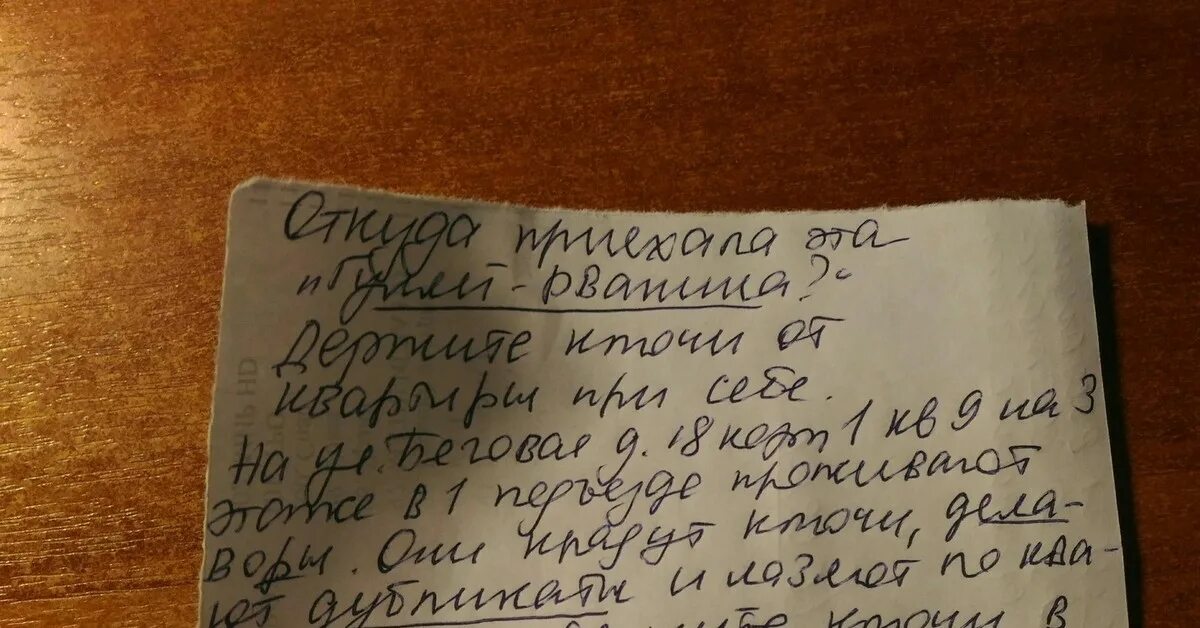 Откуда приехала эта
„Гулли-рванина?“
Держите ключи от
квартиры при себе.
На ул. Беговая д. 18 корп 1 кв 9 на 3
этаже в 1 подъезде проживают
воры. Они крадут ключи, дела-
ют дубликаты и лазяют по ква-
ключи в